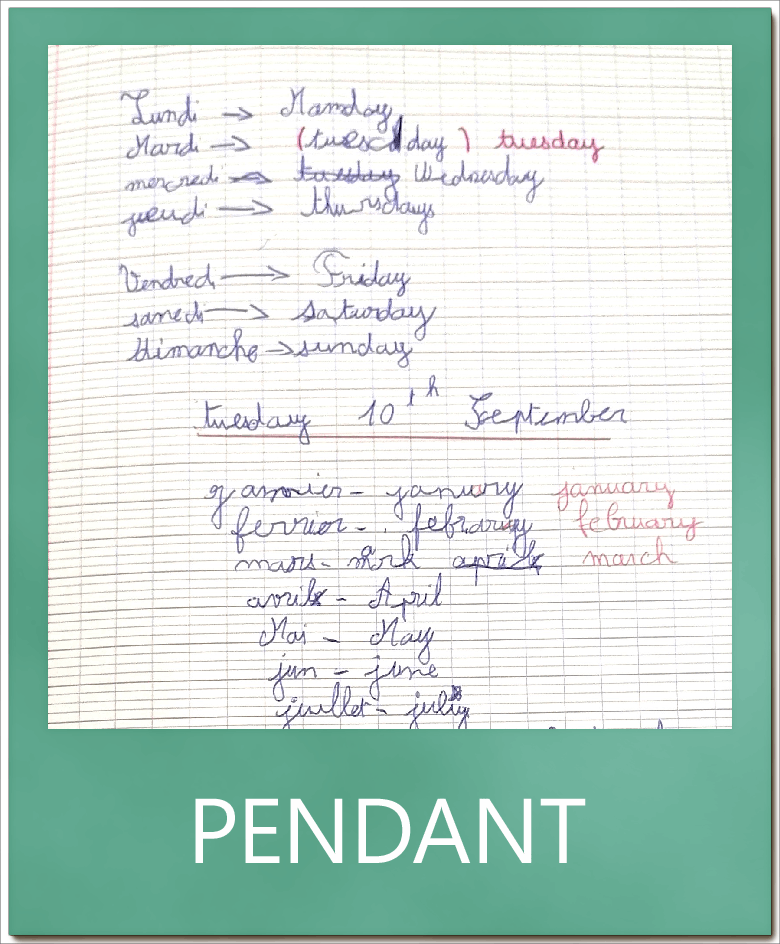 Lundi → Monday
Mardi → (tuescdday) tuesday
mercredi → tuesday Wednesday
jeudi → thursdays
Vendredi → Friday
samedi → saturday
dimanche → sunday
tuesday 10th September
janvier - january january
fevrier - february february
mars - mark april march
avril - April
Mai - May
jun - june
juillet - july
PENDANT